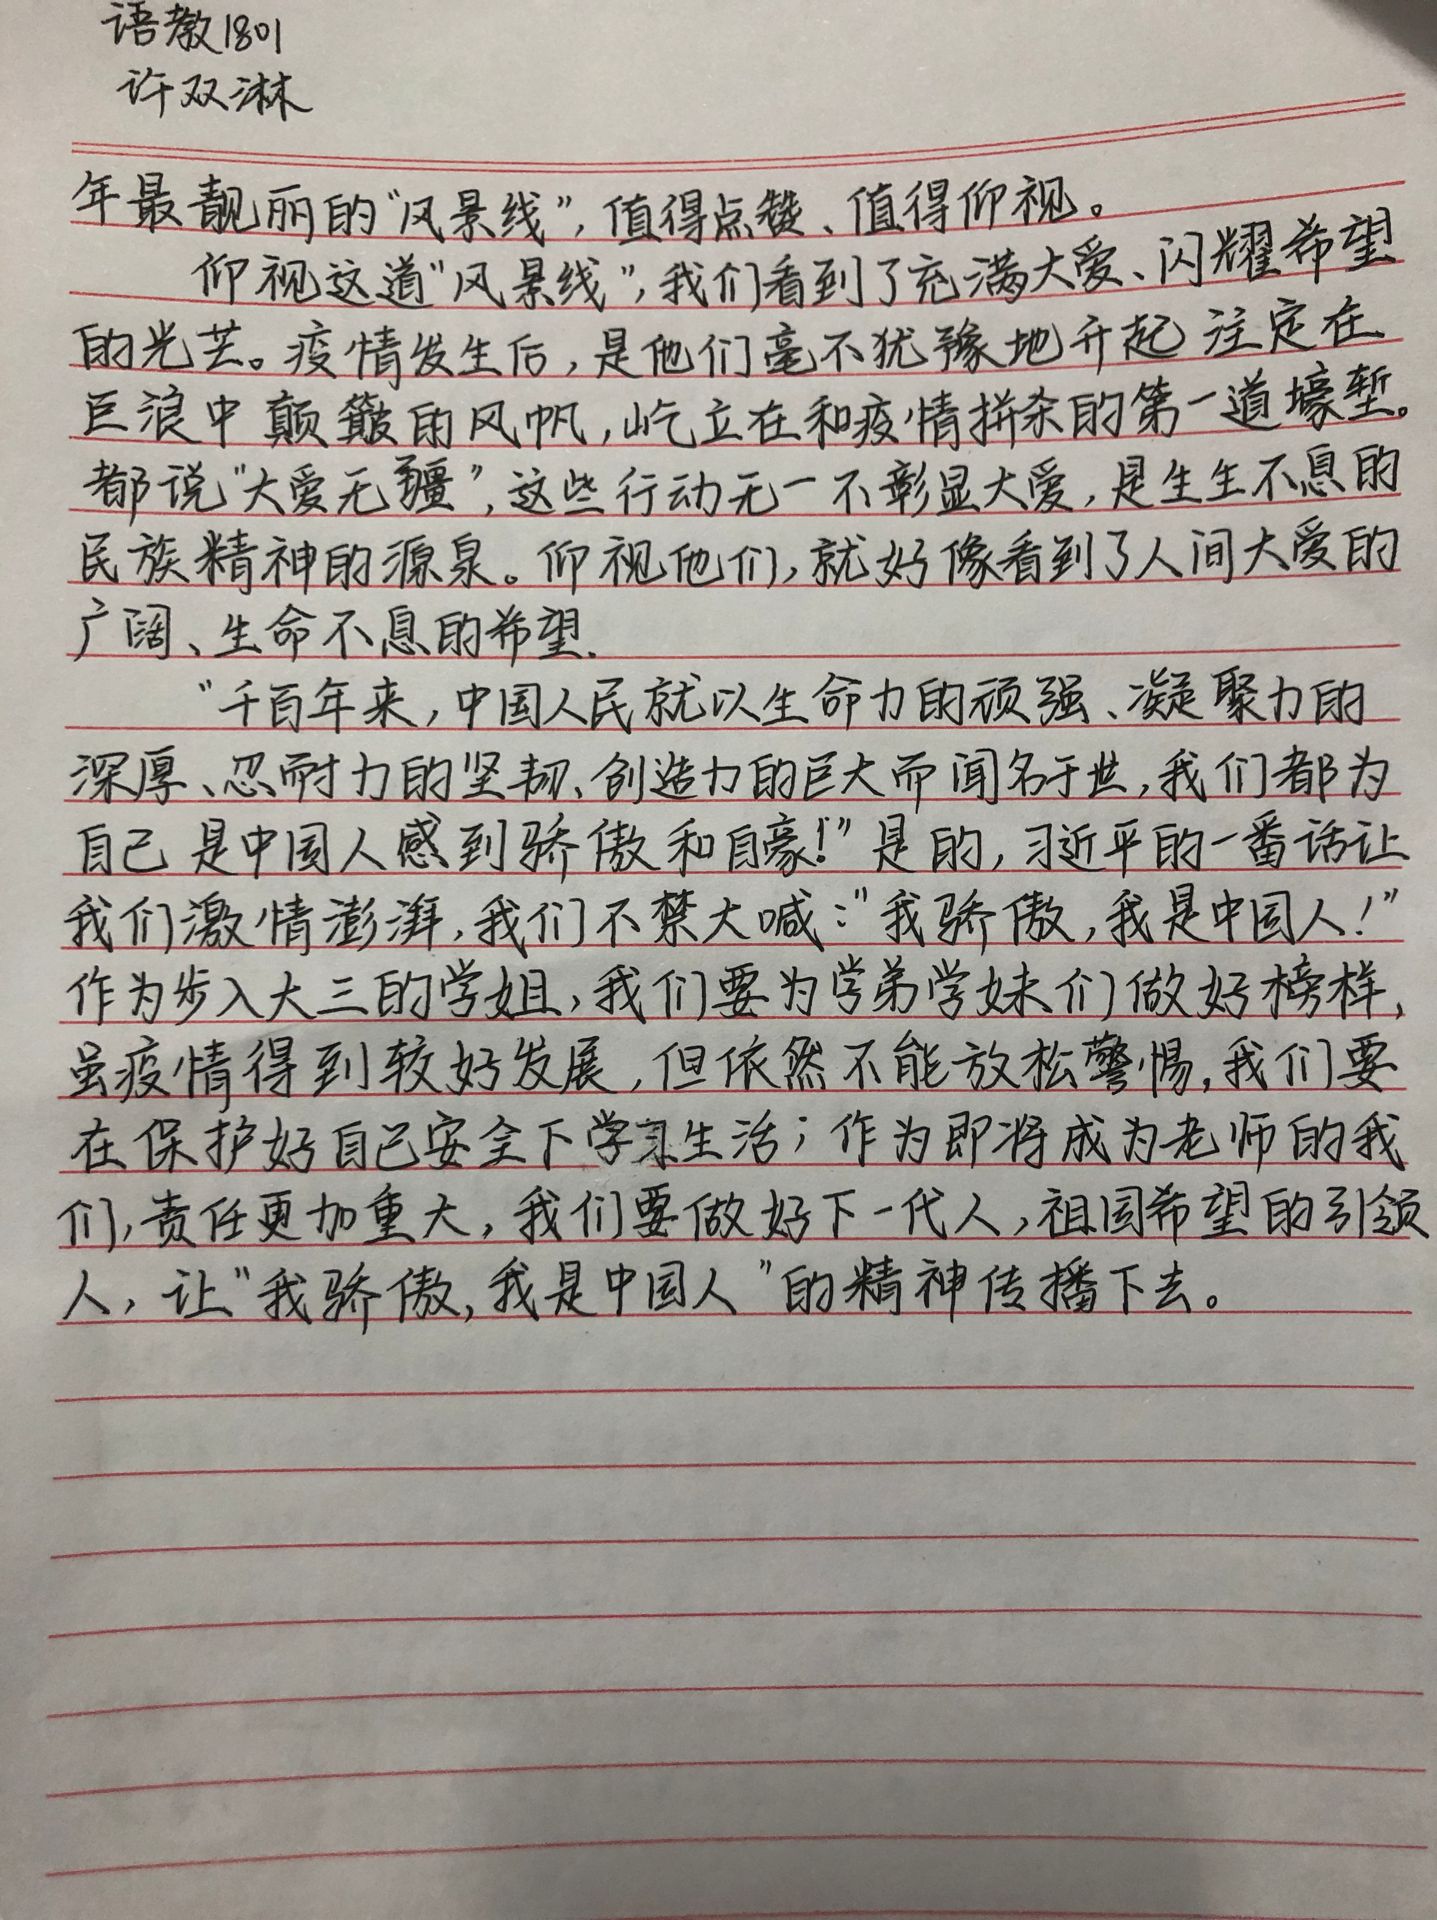 语教1801
许双淋
年最靓丽的“风景线”，值得点赞、值得仰视。
仰视这道“风景线”，我们看到了充满大爱、闪耀希望
的光芒。疫情发生后，是他们毫不犹豫地升起注定在
巨浪中颠簸的风帆，屹立在和疫情拼杀的第一道壕堑。
都说“大爱无疆”，这些行动无一不彰显大爱，是生生不息的
民族精神的源泉。仰视他们，就好像看到了人间大爱的
广阔、生命不息的希望.
“千百年来，中国人民就以生命力的顽强、凝聚力的
深厚、忍耐力的坚韧、创造力的巨大而闻名于世，我们都为
自己是中国人感到骄傲和自豪！”是的，习近平的一番话让
我们激情澎湃，我们不禁大喊：“我骄傲，我是中国人！”
作为步入大三的学姐，我们要为学弟学妹们做好榜样，
虽疫情得到较好发展，但依然不能放松警惕，我们要
在保护好自己安全下学习生活；作为即将成为老师的我
们，责任更加重大，我们要做好下一代人，祖国希望的引领
人，让“我骄傲，我是中国人”的精神传播下去。